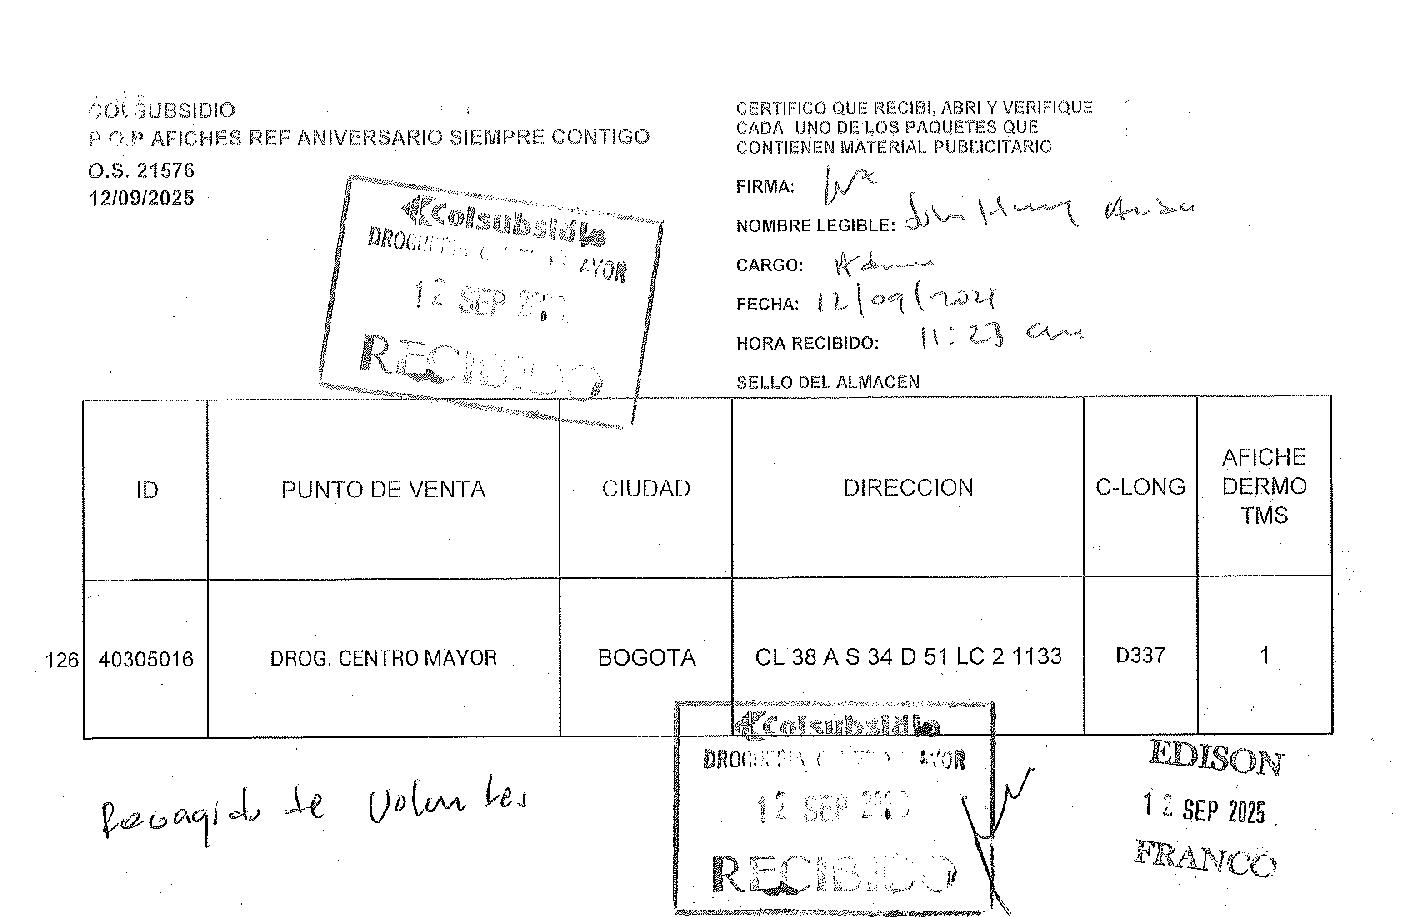 COLSUBSIDIO
P.O.P AFICHES REF ANIVERSARIO SIEMPRE CONTIGO
O.S. 21576
12/09/2025
CERTIFICO QUE RECIBI, ABRI Y VERIFIQUE
CADA UNO DE LOS PAQUETES QUE
CONTIENEN MATERIAL PUBLICITARIO
FIRMA:
NOMBRE LEGIBLE:
CARGO: Admin
FECHA: 12/09/2021
HORA RECIBIDO: 11:23 am
SELLO DEL ALMACEN
Colsubsidio
DROGUERIA CENTRO MAYOR
12 SEP
RECIBIDO
ID PUNTO DE VENTA CIUDAD DIRECCION C-LONG AFICHE DERMO TMS
126 40305016 DROG. CENTRO MAYOR BOGOTA CL 38 A S 34 D 51 LC 2 1133 D337 1
Colsubsidio
DROGUERIA CENTRO MAYOR
12 SEP
RECIBIDO
EDISON
12 SEP 2025
FRANCO
Recogido de Volantes